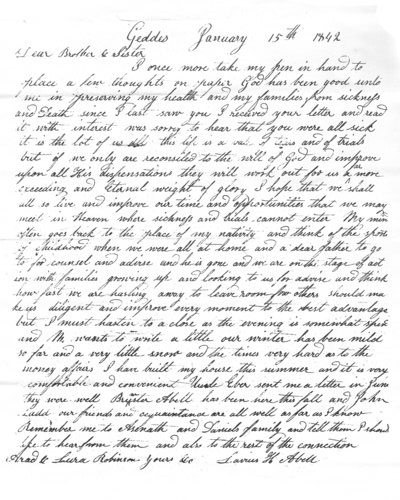 Geddes January 15th 1842
Dear Brother & Sister
I once more take my pen in hand to
place a few thoughts on paper God has been good unto
me in preserving my health and my families from sickness
and Death since I last saw you I received your letter and read
it with interest was sorry to hear that you were all sick
it is the lot of us all this life is a vale of tears and of trials
but if we only are reconsiled to the will of God and improve
upon all His dispensations they will work out for us a far more
exceeding and Eternal weight of glory I hope that we shall
all so live and improve our time and opportunities that we may
meet in Heaven where sickness and trials cannot enter My mind
often goes back to the place of my nativity and think of the sports
of childhood when we were all at home and a dear father to go
to for counsel and advise and he is gone and we are on the stage of act
ion with families growing up and looking to us for advise and think
how fast we are hasting away to leave room for others should ma
ke us diligent and improve every moment to the best advantage
but I must hasten to a close as the evening is somewhat spent
and wants to write a little our winter has been mild
so far and a very little snow and the times very hard as to the
money affairs I have built my house this summer and it is very
comfortable and convenient Uncle Eber sent me a letter in June
they were well Abell has been here this fall and John
Ladd our friends and acquaintance are all well as far as I know
Remember me to Asenath and Daniels family and tell them I should
like to hear from them and also to the rest of the connection
Robinson Yours &c H Abell